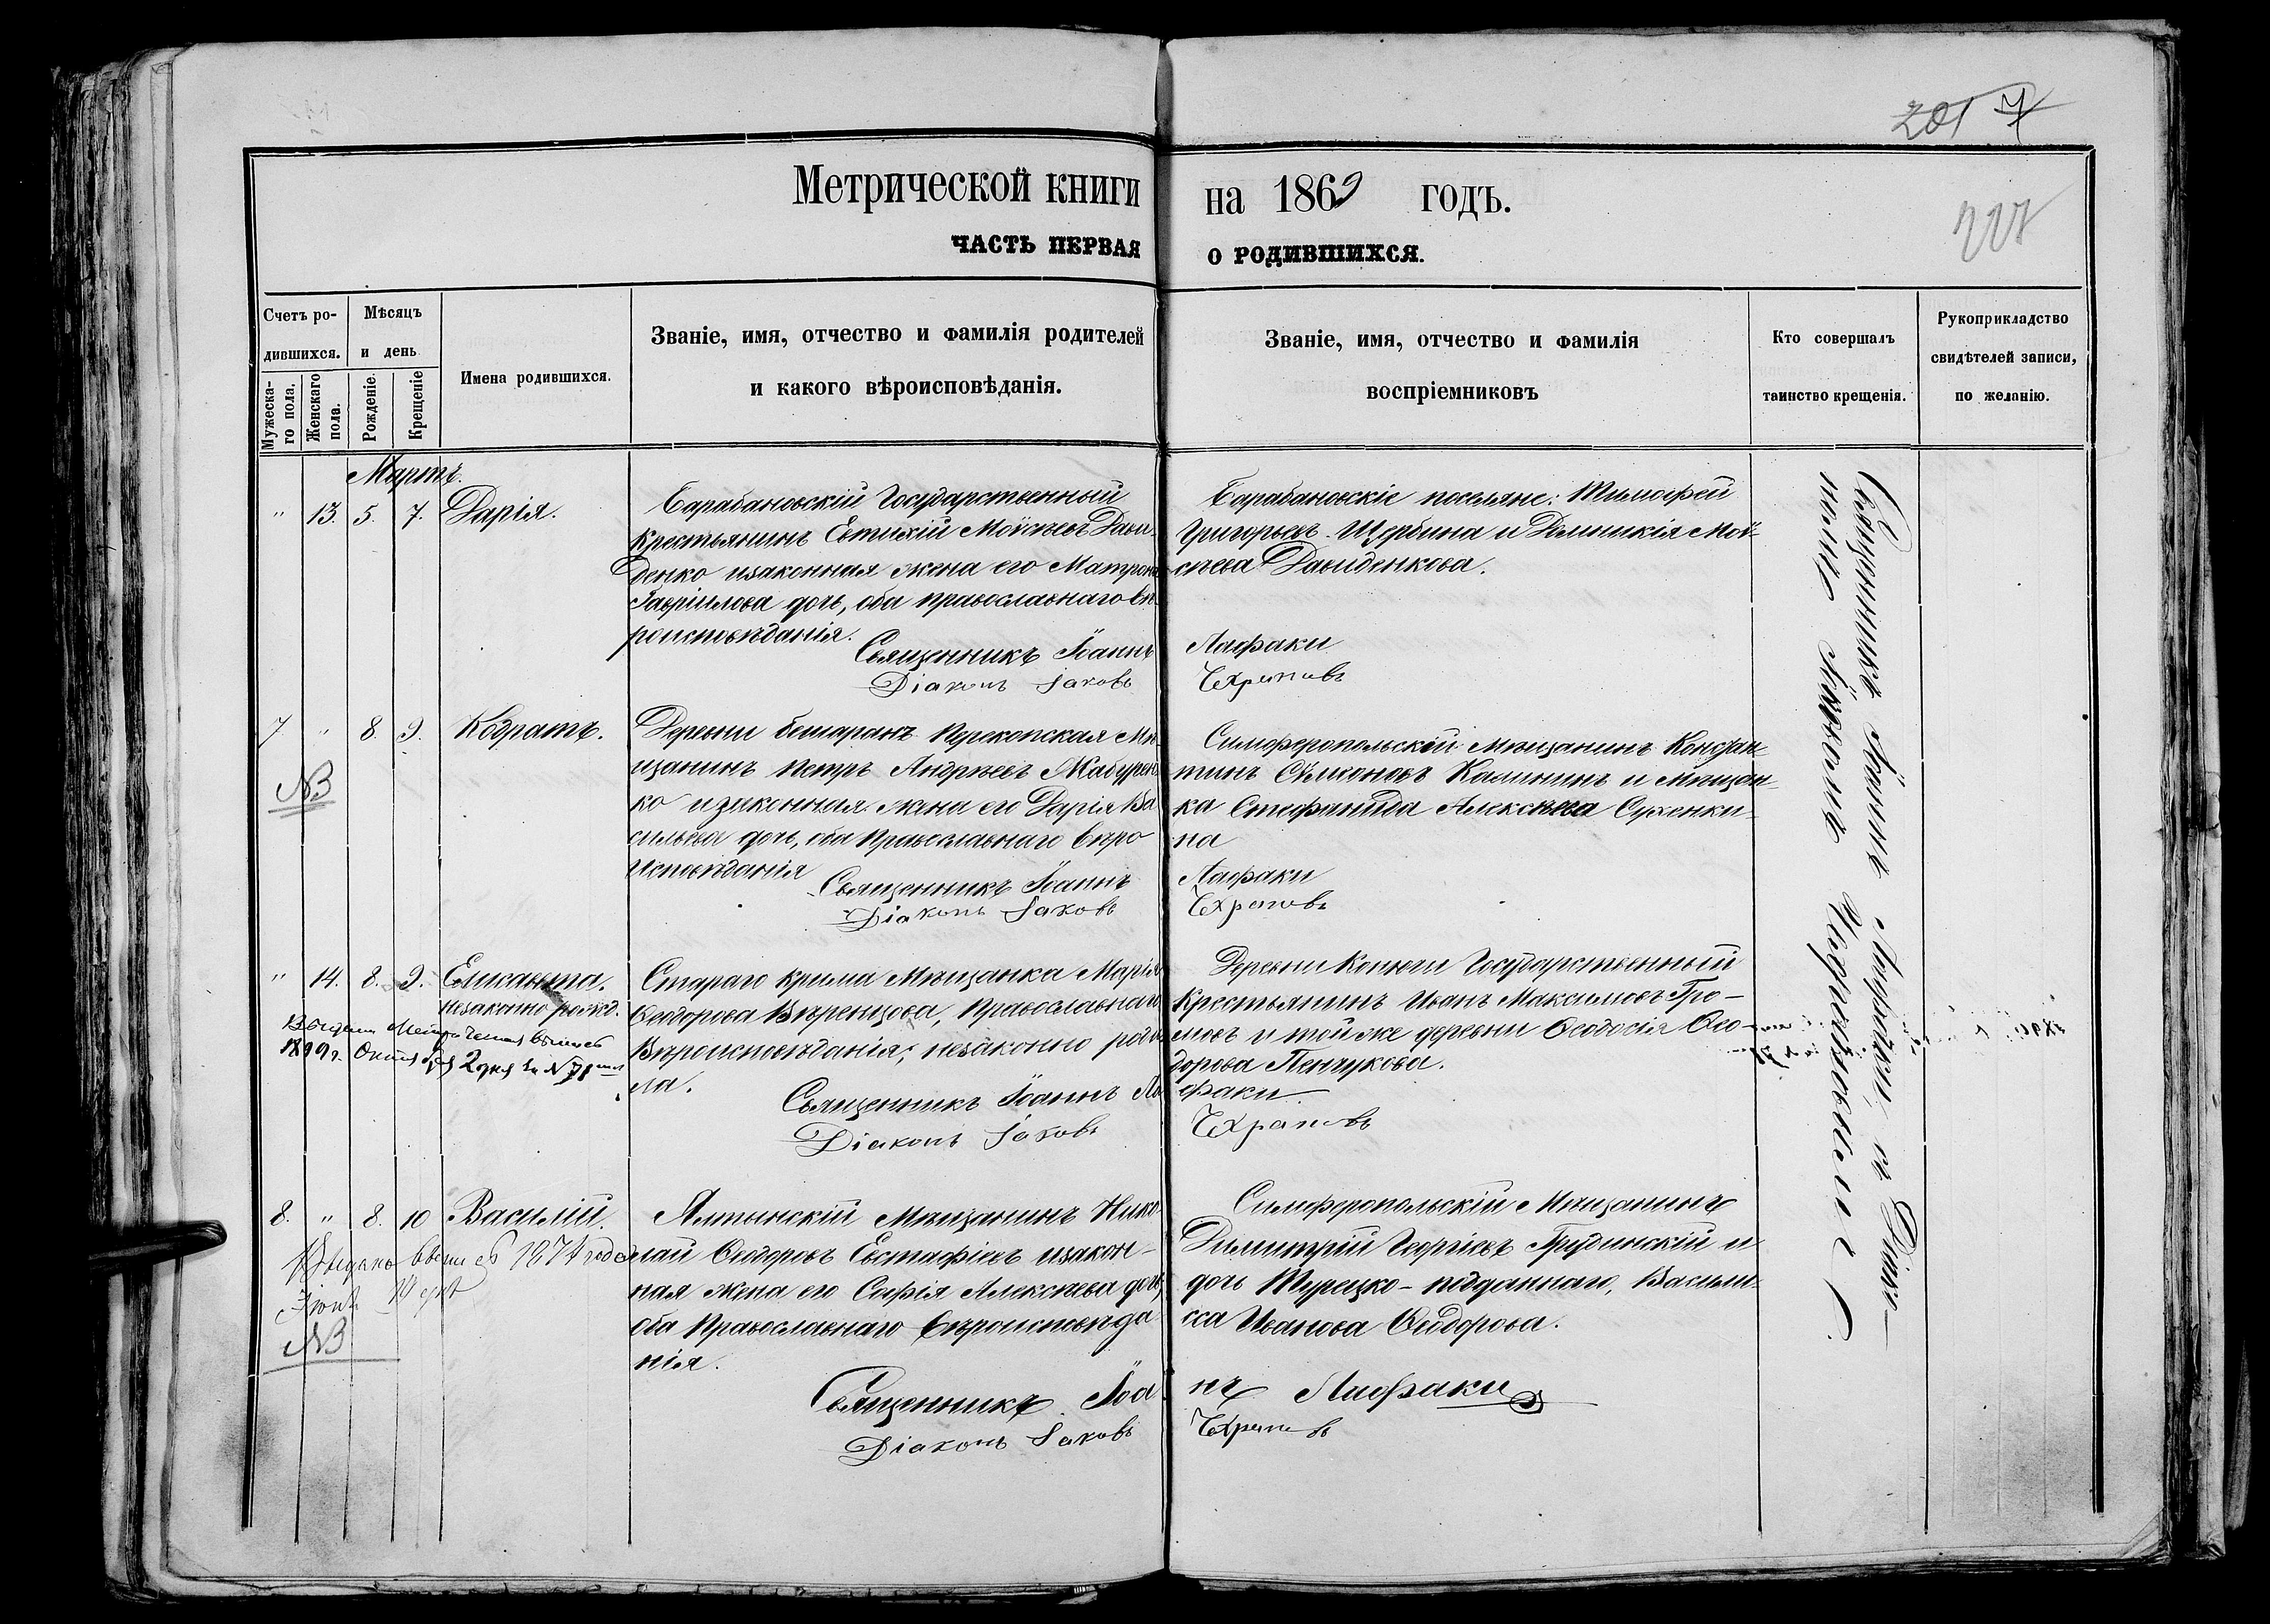 201 7
Метрической книги на 1869 годъ.
ЧАСТЬ ПЕРВАЯ О РОДИВШИХСЯ.
Счетъ ро-
дившихся.
Мѣсяцъ
и день
Мужеска-
го пола.
Женскаго
пола.
Рожденіе.
Крещеніе
Имена родившихся.
Званіе, имя, отчество и фамилія родителей
и какого вѣроисповѣданія.
Званіе, имя, отчество и фамилія
воспріемниковъ
Кто совершалъ
таинство крещенія.
Рукоприкладство
свидѣтелей записи,
по желанію.
Мартъ.
" 13. 5. 7. Дарія.
Барабановскій Государственный
Крестьянинъ Евтихій Моѵсѣевъ Дави-
денко изаконная жена его Матрона
Гавріилова дочь, оба православнаго вѣ-
роисповѣданія.
Священникъ Іоаннъ Лафаки
Діаконъ Іаковъ Чехрановъ
Барабановскіе поселяне: Тимофей
Григорьевъ Щербина и Домникія Мой-
сѣева Давиденкова.
7. " 8. 9. Кодратъ.
NB
Деревни бешаранъ Перекопская Мѣ-
щанинъ Петръ Андреевъ Мабурен-
ко изаконная жена его Дарія Ва
сильева дочь, оба Православнаго вѣро
Исповѣданія
Священникъ Іоаннъ Лафаки
Діаконъ Іаковъ Чехрановъ
Симферопольскій Мѣщанинъ Констан-
тинъ Симоновъ Калининъ и мѣщан-
ка Стефанида Алексѣева Суженки-
на
" 14. 8. 9. Елисавета.
незаконно рожд.
Выдана Метрическая выпись
1899 г. Октября 2 дня за №
Стараго крима Мѣщанка Марія
Ѳеодорова Веренцова, Православнаго
Вѣроисповѣданія, незаконно роди
ла.
Священникъ Іоаннъ Ла факи
Діаконъ Іаковъ Чехрановъ
Деревни Копючи Государственный
Крестьянинъ Иванъ Максимовъ Гро-
мовъ и той же деревни Ѳеодосія Ѳео-
дорова Пенчукова.
8. " 8. 10 Василій.
Выдано выпись 1874 года
Іюня 14 дня
NB
Ялтынскій Мѣщанинъ Нико
лай Ѳеодоровъ Евстафіевъ изакон-
ная жена его Софія Алексѣева дочь,
оба Православнаго Вѣроисповѣда
нія.
Священникъ Іоа ннъ Лафаки
Діаконъ Іаковъ Чехрановъ
Симферопольскій Мѣщанинъ
Димитрій Георгіевъ Грудинскій и
дочь Турецко-подданнаго, Васили-
сса Иванова Ѳеодорова.
Священникъ Іоаннъ Лафаки, и Діако-
номъ Іаковомъ Чехрановымъ.